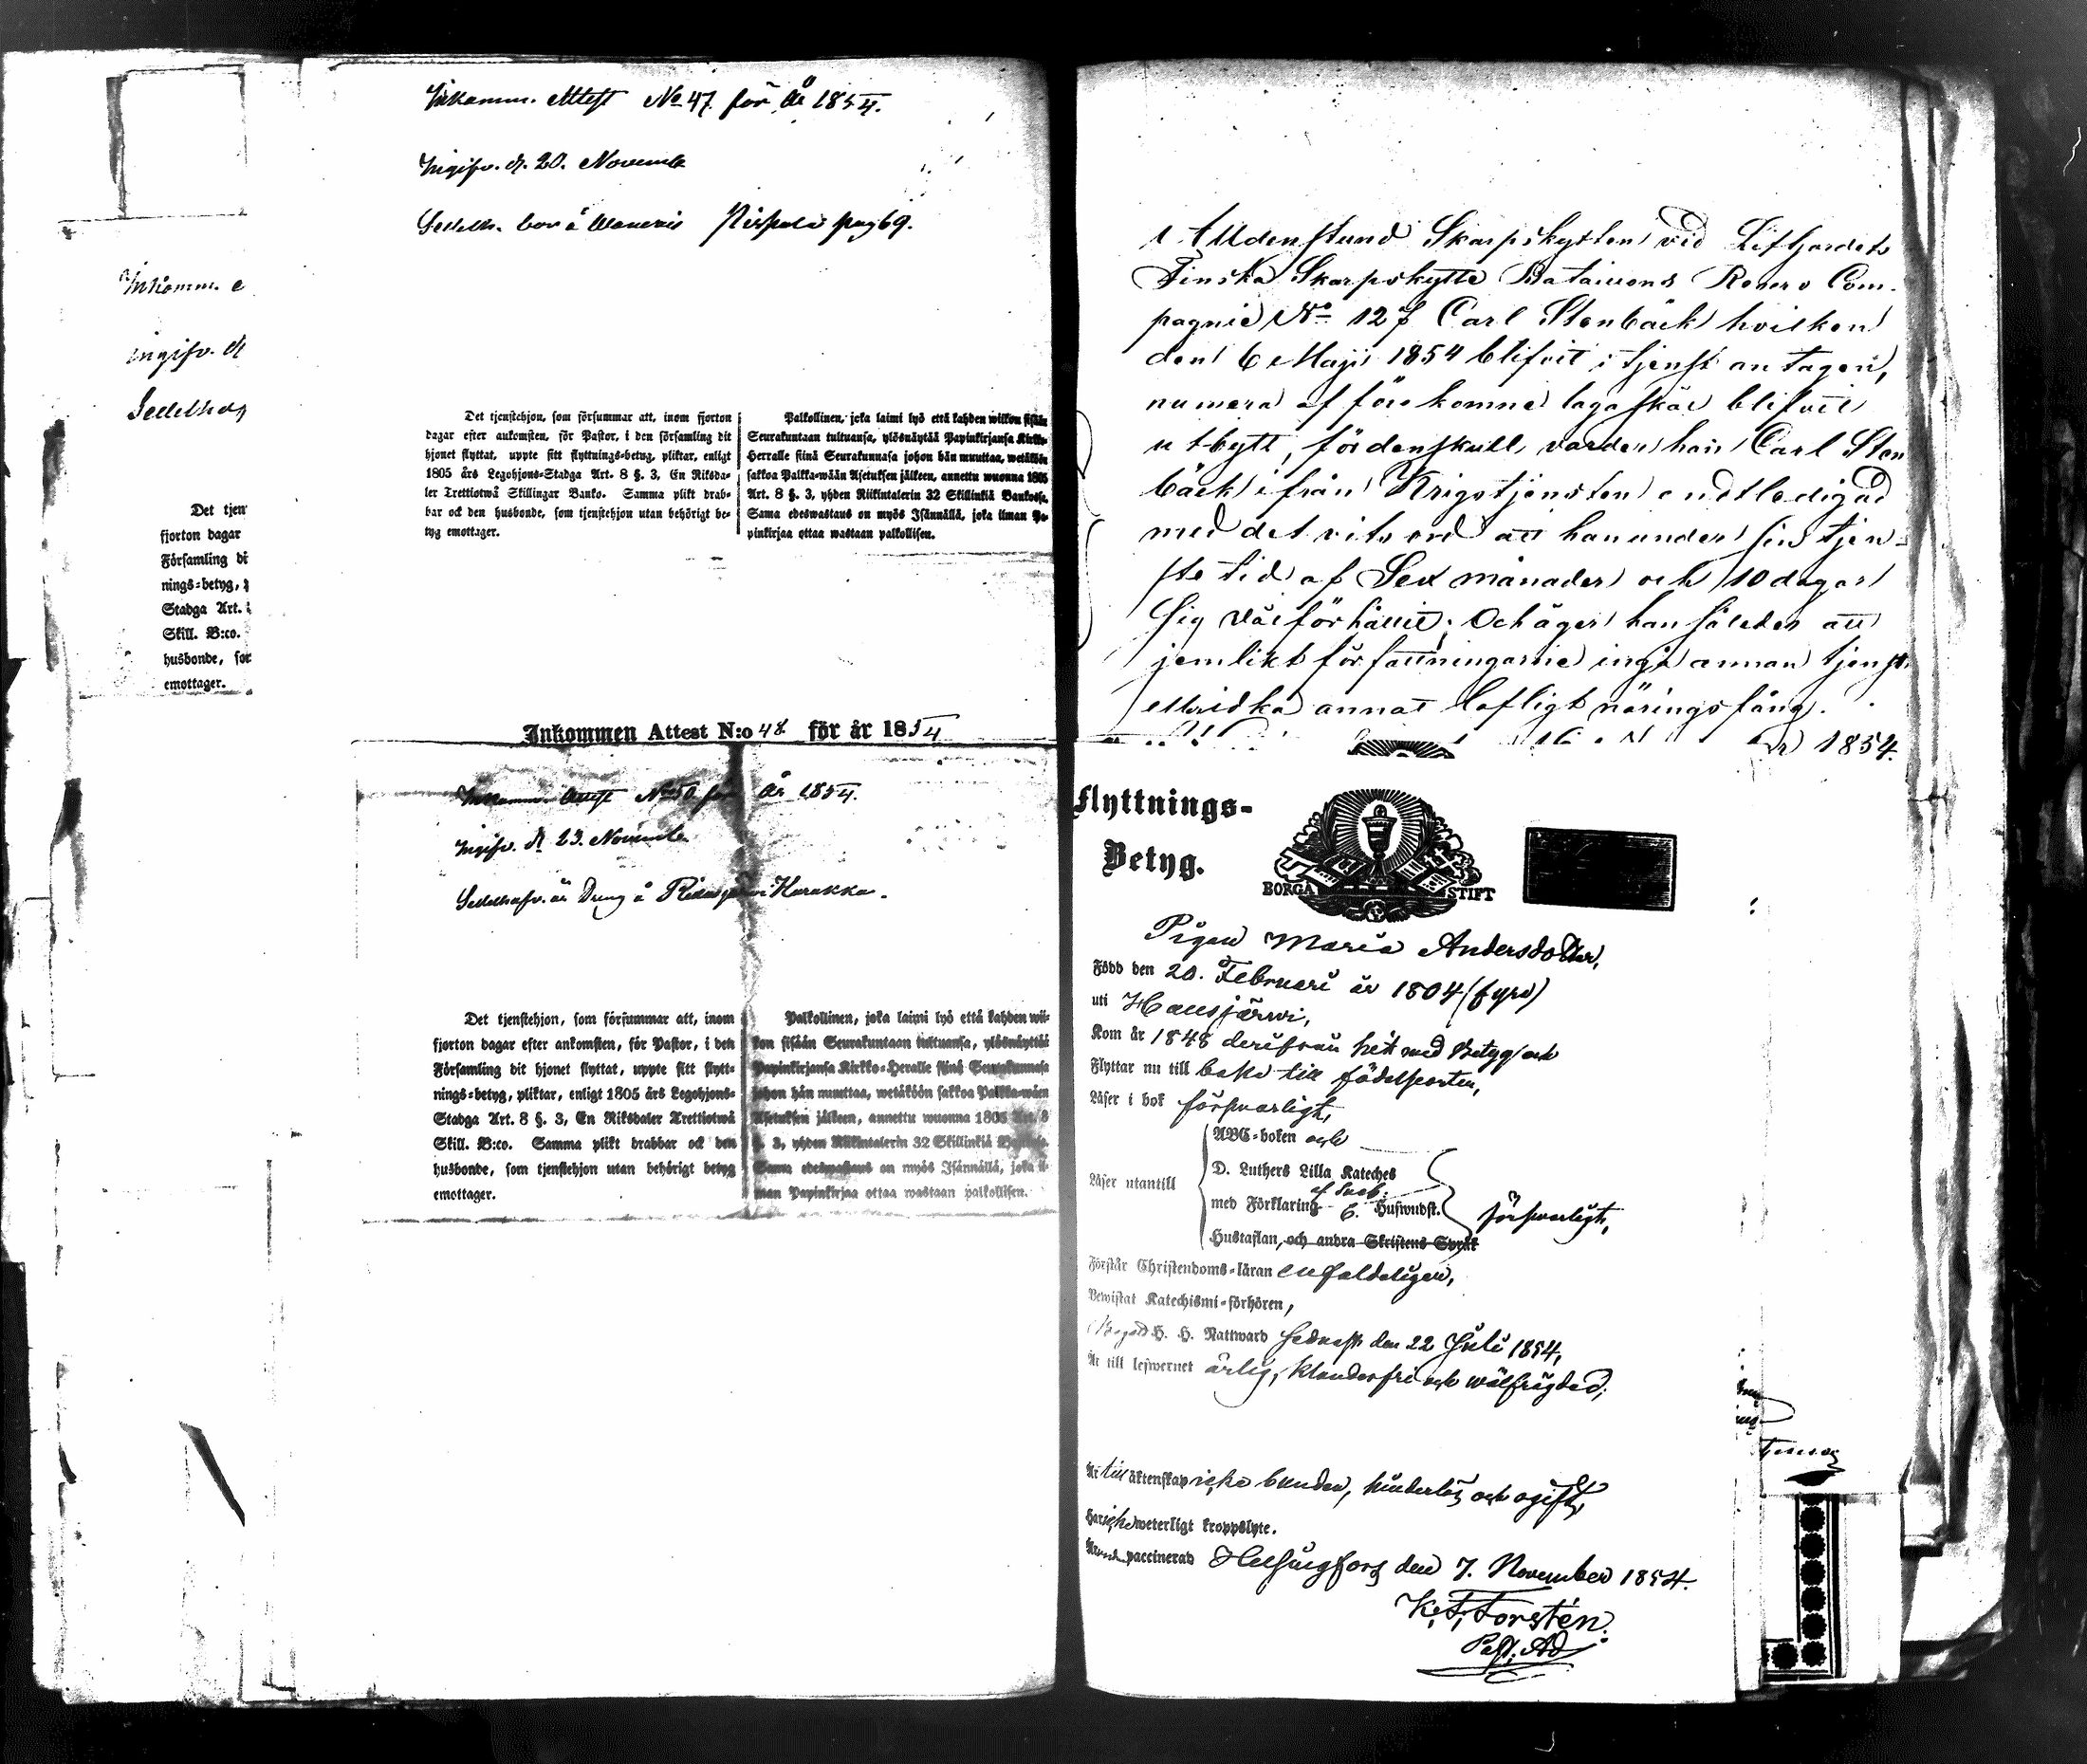 Inkomm. Attest No 47 för år 1854.
Ingifv. d. 20. Novemb
Sedelh. bor å
pag 69.
Inkomm. e
ingifv. d
Sedelhaf
Det tjenstehjon, som försummar att, inom fjorton
dagar efter ankomsten, för Pastor, i den församling dit
hjonet flyttat, uppte sitt flyttnings-betyg, pliktar, enligt
1805 års Legohjons-Stadga Art. 8 §. 3, En Riksda-
ler Trettiotwå Skillingar Banko. Samma plikt drab-
bar ock den husbonde, som tjenstehjon utan behörigt be-
tyg emottager.
Palkollinen, joka laimi lyö että kahden wiikon sisään
Seurakuntaan tultuansa, ylösnäytää Papinkirjansa Kirkko-
Herralle siinä Seurakunnasa johon hän muuttaa, wetäköön
sakkoa Palkka-wään Asetuksen jälkeen, annettu wuonna 1805
Art. 8 §. 3, yhden Riikintalerin 32 Skillinkiä Bankosa.
Sama edeswastaus on myös Isännällä, joka ilman Pa-
pinkirjaa ottaa wastaan palkollisen.
Det tjen
fjorton dagar
Församling di
nings-betyg,
Stadga Art.
Skill. B:co.
husbonde, som
emottager.
Inkommen Attest N:o 48 för år 1854
Inkomm. Attest No 50 för år 1854.
Ingifv. d. 23. Novemb
Sedelhafv. är Dreng å Karakka.
Det tjenstehjon, som försummar att, inom
fjorton dagar efter ankomsten, för Pastor, i den
Församling dit hjonet flyttat, uppte sitt flytt-
nings-betyg, pliktar, enligt 1805 års Legohjons-
Stadga Art. 8 §. 3, En Riksdaler Trettiotwå
Skill. B:co. Samma plikt drabbar ock den
husbonde, som tjenstehjon utan behörigt betyg
emottager.
Palkollinen, joka laimi lyö että kahden wii-
kon sisään Seurakuntaan tultuansa, ylösnäyttää
Papinkirjansa Kirkko-Heralle siinä Seurakunnasa
johon hän muuttaa, wetäköön sakkoa Palkka-wäen
Asetuksen jälkeen, annettu wuonna 1805 Art. 8
§. 3, yhden Riikintalerin 32 Skillinkiä
Sama edeswastaus on myös Isännällä, joka il-
man Papinkirjaa ottaa wastaan palkollisen.
Aldenstund Skarpskytten vid Lifgardets
Finska Skarpskytte Bataillons Reserv Com-
pagnie No 127 Carl Stenbäck hvilken
den 6 Maji 1854 blifvit i tjenst antagen,
numera af förekomne laga skäl blifvit
utbytt, fördenskull varder han Carl Sten
bäck ifrån Krigstjensten endtledigad
med det vitsord att han under sin tjen-
ste tid af Sex månader och 10 dagar
sig väl förhållit; Och äger han således att
jemlikt författningarne ingå annan tjenst
eller idka annat lofligt näringsfång.
1854.
Flyttnings-
Betyg.
BORGÅ STIFT
Pigan Maria Andersdotter,
Född den 20. Februari år 1804 (fyra)
uti Hausjärvi,
Kom år 1848 derifrån hit med Betyg och
Flyttar nu till baka till födelseorten,
Läser i bok försvarligt,
Läser utantill
ABC-boken och
D. Luthers Lilla Kateches
med Förklaring af Sveb. Huswudst.
Hustaflan, och andra Skriftens Språk
försvarligt,
Förstår Christendoms-läran enfaldeligen,
Bewistat Katechismi-förhören,
Begått H. H. Nattward sednast den 22 Juli 1854,
Är till lefwernet ärlig, klanderfri och wälfrägdad;
Är till äktenskap icke bunden, hinderlös och ogift,
Har icke weterligt kroppslyte.
vaccinerad Helsingfors den 7. November 1854.
K. F. Forstén.
Past. Ad